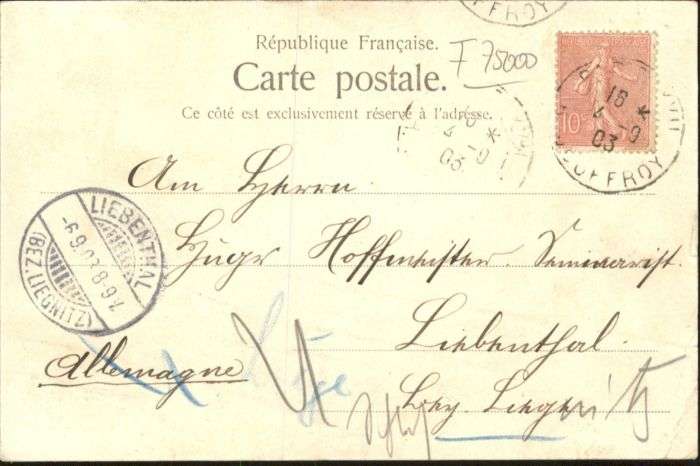 OFFROY
République Française.
F 75000
Carte postale.
Ce côté est exclusivement réservé à l'adresse.
10c
18
4-9
03
OFFROY
Am Herrn
Hugo Hoffmeister. Seminarist.
LIEBENTHAL
-6.9.03.8-9V.
(BEZ. LIEGNITZ)
Liebenthal.
Allemagne
Bez. Liegnitz